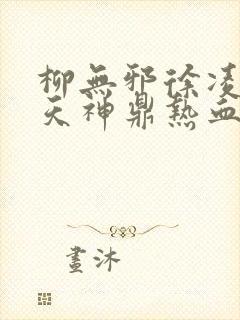 柳無邪徐凌
天神鼎熱血
畫沐